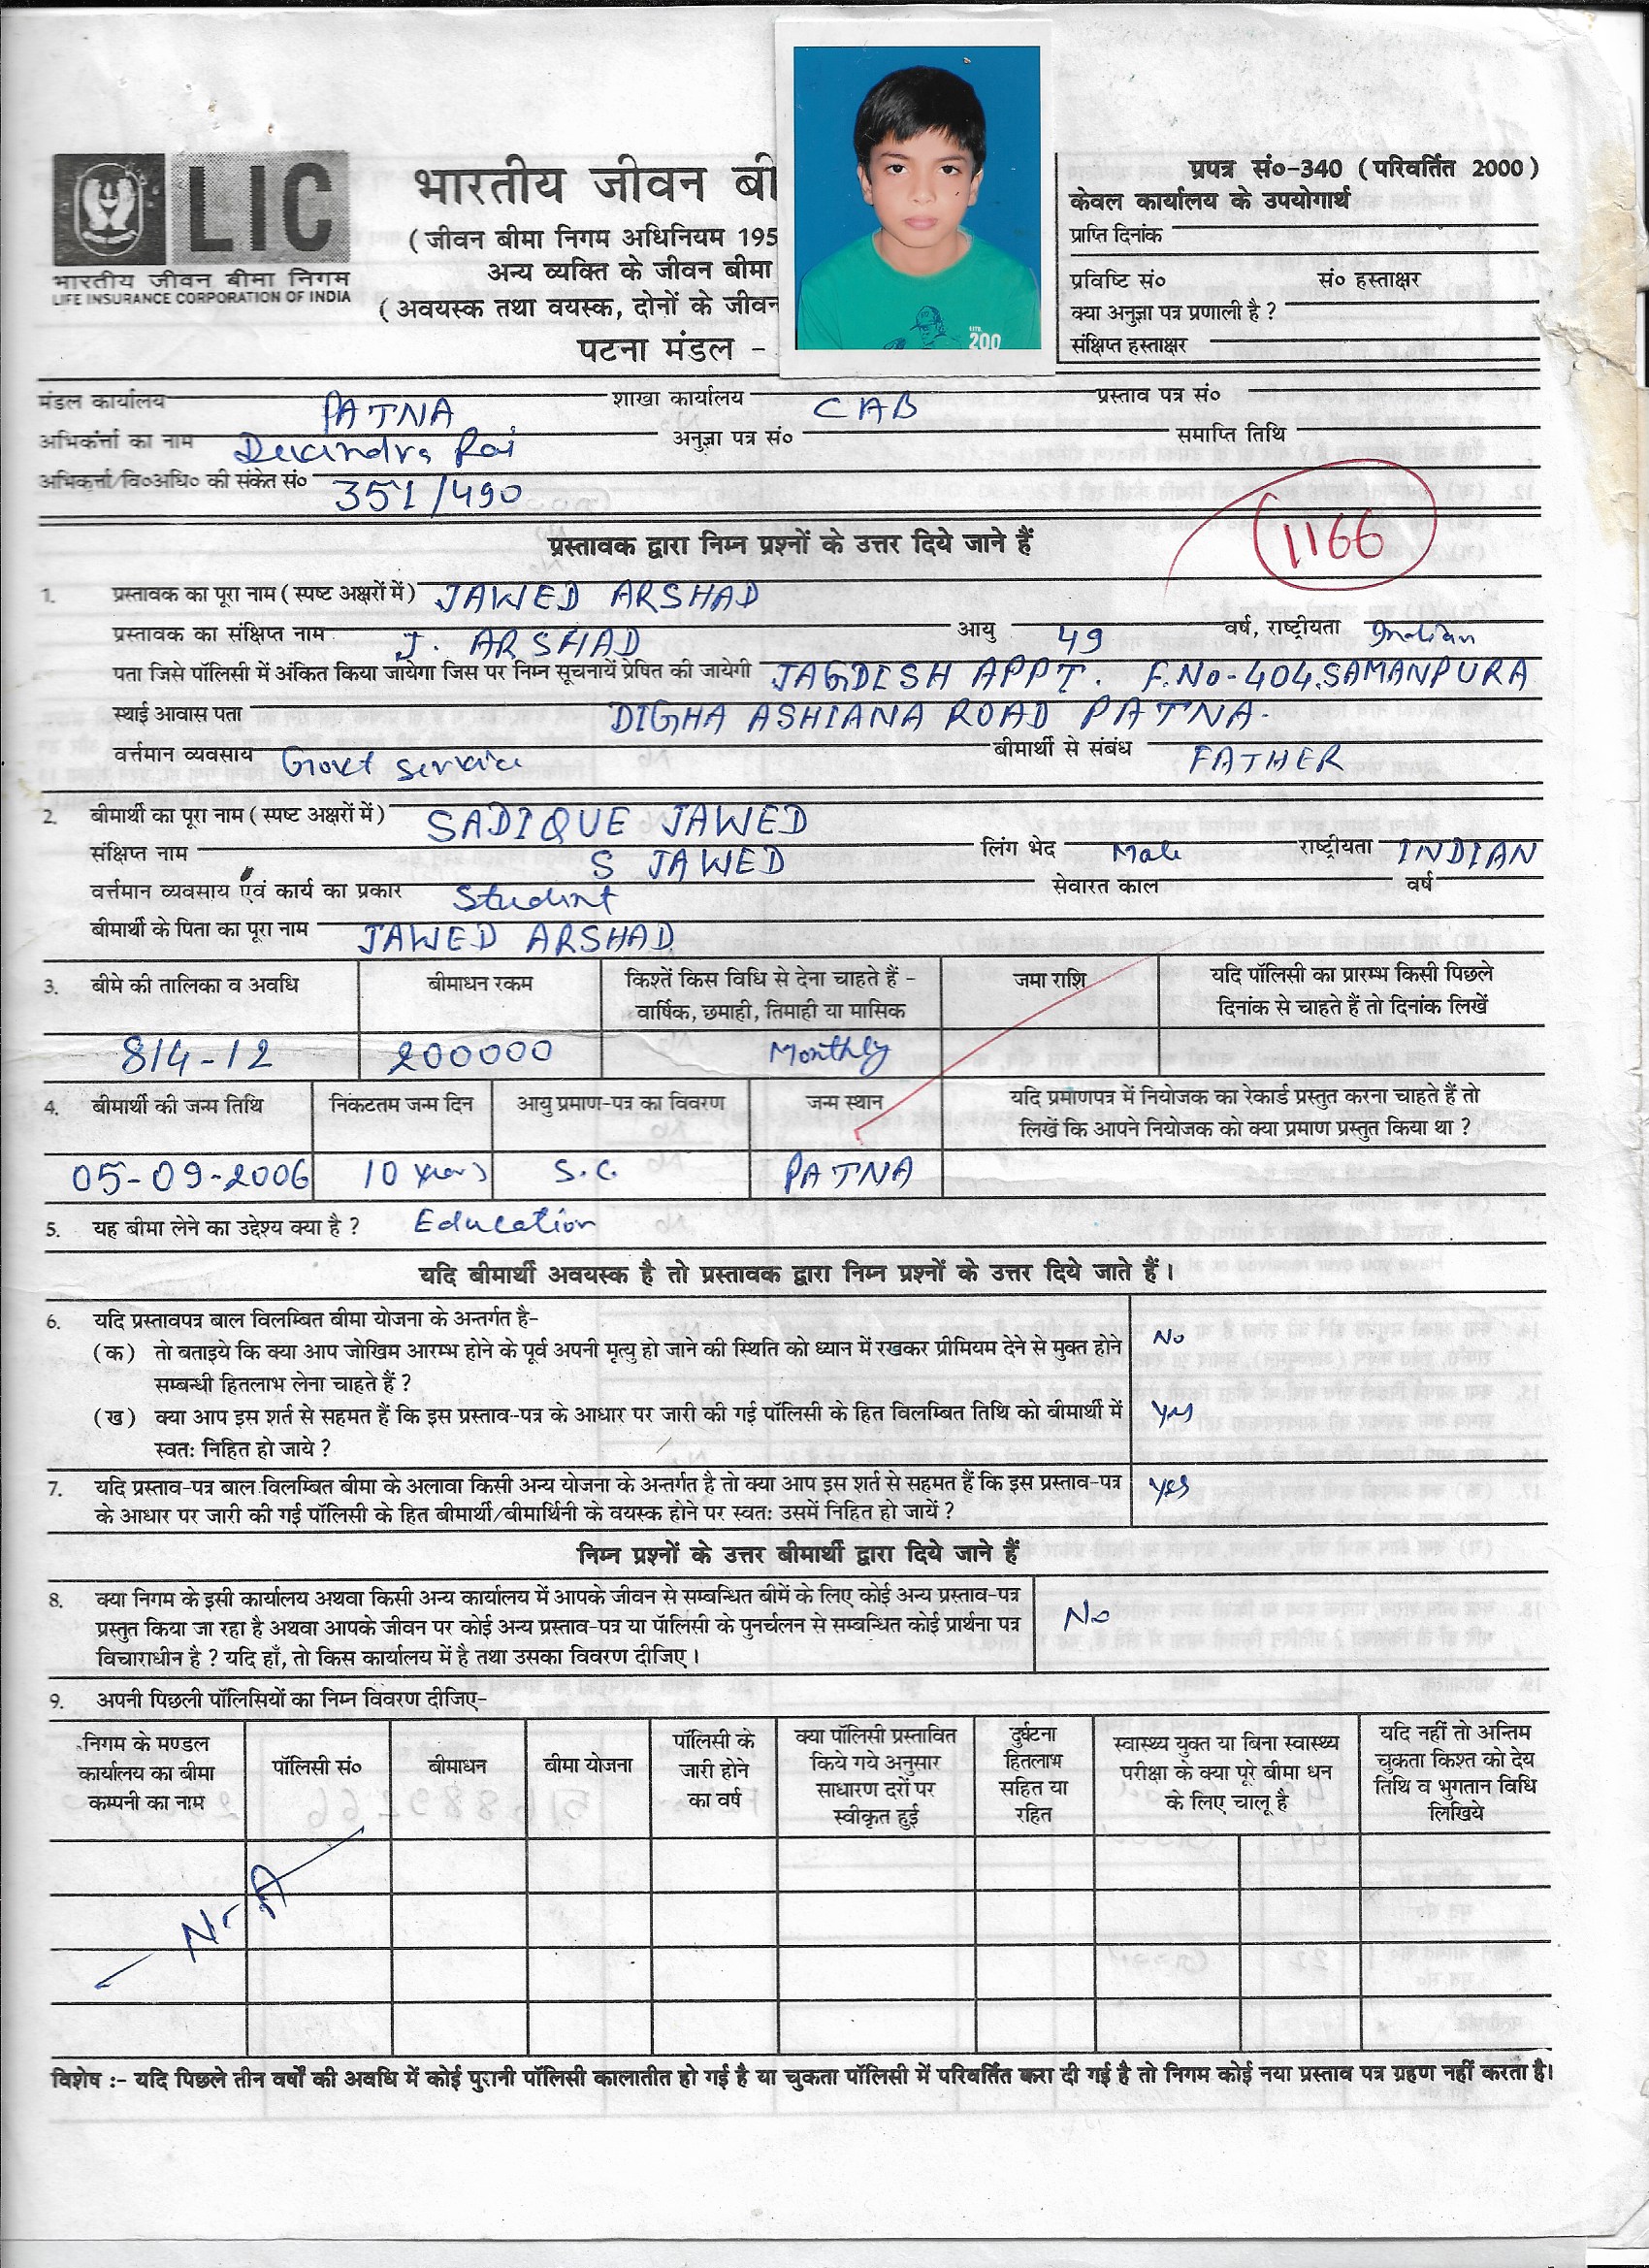 LIC
भारतीय जीवन बीमा निगम
LIFE INSURANCE CORPORATION OF INDIA
भारतीय जीवन बी
( जीवन बीमा निगम अधिनियम 195
अन्य व्यक्ति के जीवन बीमा
( अवयस्क तथा वयस्क, दोनों के जीवन
पटना मंडल -
200
प्रपत्र सं०-340 ( परिवर्तित 2000 )
केवल कार्यालय के उपयोगार्थ
प्राप्ति दिनांक
प्रविष्टि सं० सं० हस्ताक्षर
क्या अनुज्ञा पत्र प्रणाली है ?
संक्षिप्त हस्ताक्षर
मंडल कार्यालय PATNA शाखा कार्यालय CAB प्रस्ताव पत्र सं०
अभिकर्त्ता का नाम Devendra Rai अनुज्ञा पत्र सं० समाप्ति तिथि
अभिकर्त्ता/वि०अधि० की संकेत सं० 351/490
1166
प्रस्तावक द्वारा निम्न प्रश्नों के उत्तर दिये जाने हैं
1. प्रस्तावक का पूरा नाम ( स्पष्ट अक्षरों में ) JAWED ARSHAD
प्रस्तावक का संक्षिप्त नाम J. ARSHAD आयु 49 वर्ष, राष्ट्रीयता Indian
पता जिसे पॉलिसी में अंकित किया जायेगा जिस पर निम्न सूचनायें प्रेषित की जायेगी JAGDESH APPT. F.No-404.SAMANPURA
स्थाई आवास पता DIGHA ASHIANA ROAD PATNA.
वर्त्तमान व्यवसाय Govt service बीमार्थी से संबंध FATHER
2. बीमार्थी का पूरा नाम ( स्पष्ट अक्षरों में ) SADIQUE JAWED
संक्षिप्त नाम S JAWED लिंग भेद Male राष्ट्रीयता INDIAN
वर्त्तमान व्यवसाय एवं कार्य का प्रकार Student सेवारत काल वर्ष
बीमार्थी के पिता का पूरा नाम JAWED ARSHAD
3. बीमे की तालिका व अवधि बीमाधन रकम किश्तें किस विधि से देना चाहते हैं - जमा राशि यदि पॉलिसी का प्रारम्भ किसी पिछले
वार्षिक, छमाही, तिमाही या मासिक दिनांक से चाहते हैं तो दिनांक लिखें
814-12 200000 Monthly
4. बीमार्थी की जन्म तिथि निकटतम जन्म दिन आयु प्रमाण-पत्र का विवरण जन्म स्थान यदि प्रमाणपत्र में नियोजक का रेकार्ड प्रस्तुत करना चाहते हैं तो
लिखें कि आपने नियोजक को क्या प्रमाण प्रस्तुत किया था ?
05-09-2006 10 S.C. PATNA
5. यह बीमा लेने का उद्देश्य क्या है ? Education
यदि बीमार्थी अवयस्क है तो प्रस्तावक द्वारा निम्न प्रश्नों के उत्तर दिये जाते हैं।
6. यदि प्रस्तावपत्र बाल विलम्बित बीमा योजना के अन्तर्गत है-
(क) तो बताइये कि क्या आप जोखिम आरम्भ होने के पूर्व अपनी मृत्यु हो जाने की स्थिति को ध्यान में रखकर प्रीमियम देने से मुक्त होने No
सम्बन्धी हितलाभ लेना चाहते हैं ?
(ख) क्या आप इस शर्त से सहमत हैं कि इस प्रस्ताव-पत्र के आधार पर जारी की गई पॉलिसी के हित विलम्बित तिथि को बीमार्थी में Yes
स्वतः निहित हो जाये ?
7. यदि प्रस्ताव-पत्र बाल विलम्बित बीमा के अलावा किसी अन्य योजना के अन्तर्गत है तो क्या आप इस शर्त से सहमत हैं कि इस प्रस्ताव-पत्र Yes
के आधार पर जारी की गई पॉलिसी के हित बीमार्थी/बीमार्थिनी के वयस्क होने पर स्वतः उसमें निहित हो जायें ?
निम्न प्रश्नों के उत्तर बीमार्थी द्वारा दिये जाने हैं
8. क्या निगम के इसी कार्यालय अथवा किसी अन्य कार्यालय में आपके जीवन से सम्बन्धित बीमें के लिए कोई अन्य प्रस्ताव-पत्र
प्रस्तुत किया जा रहा है अथवा आपके जीवन पर कोई अन्य प्रस्ताव-पत्र या पॉलिसी के पुनर्चलन से सम्बन्धित कोई प्रार्थना पत्र No
विचाराधीन है ? यदि हाँ, तो किस कार्यालय में है तथा उसका विवरण दीजिए।
9. अपनी पिछली पॉलिसियों का निम्न विवरण दीजिए-
निगम के मण्डल कार्यालय का बीमा कम्पनी का नाम
पॉलिसी सं०
बीमाधन
बीमा योजना
पॉलिसी के जारी होने का वर्ष
क्या पॉलिसी प्रस्तावित किये गये अनुसार साधारण दरों पर स्वीकृत हुई
दुर्घटना हितलाभ सहित या रहित
स्वास्थ्य युक्त या बिना स्वास्थ्य परीक्षा के क्या पूरे बीमा धन के लिए चालू है
यदि नहीं तो अन्तिम चुकता किश्त को देय तिथि व भुगतान विधि लिखिये
विशेष :- यदि पिछले तीन वर्षों की अवधि में कोई पुरानी पॉलिसी कालातीत हो गई है या चुकता पॉलिसी में परिवर्तित करा दी गई है तो निगम कोई नया प्रस्ताव पत्र ग्रहण नहीं करता है।